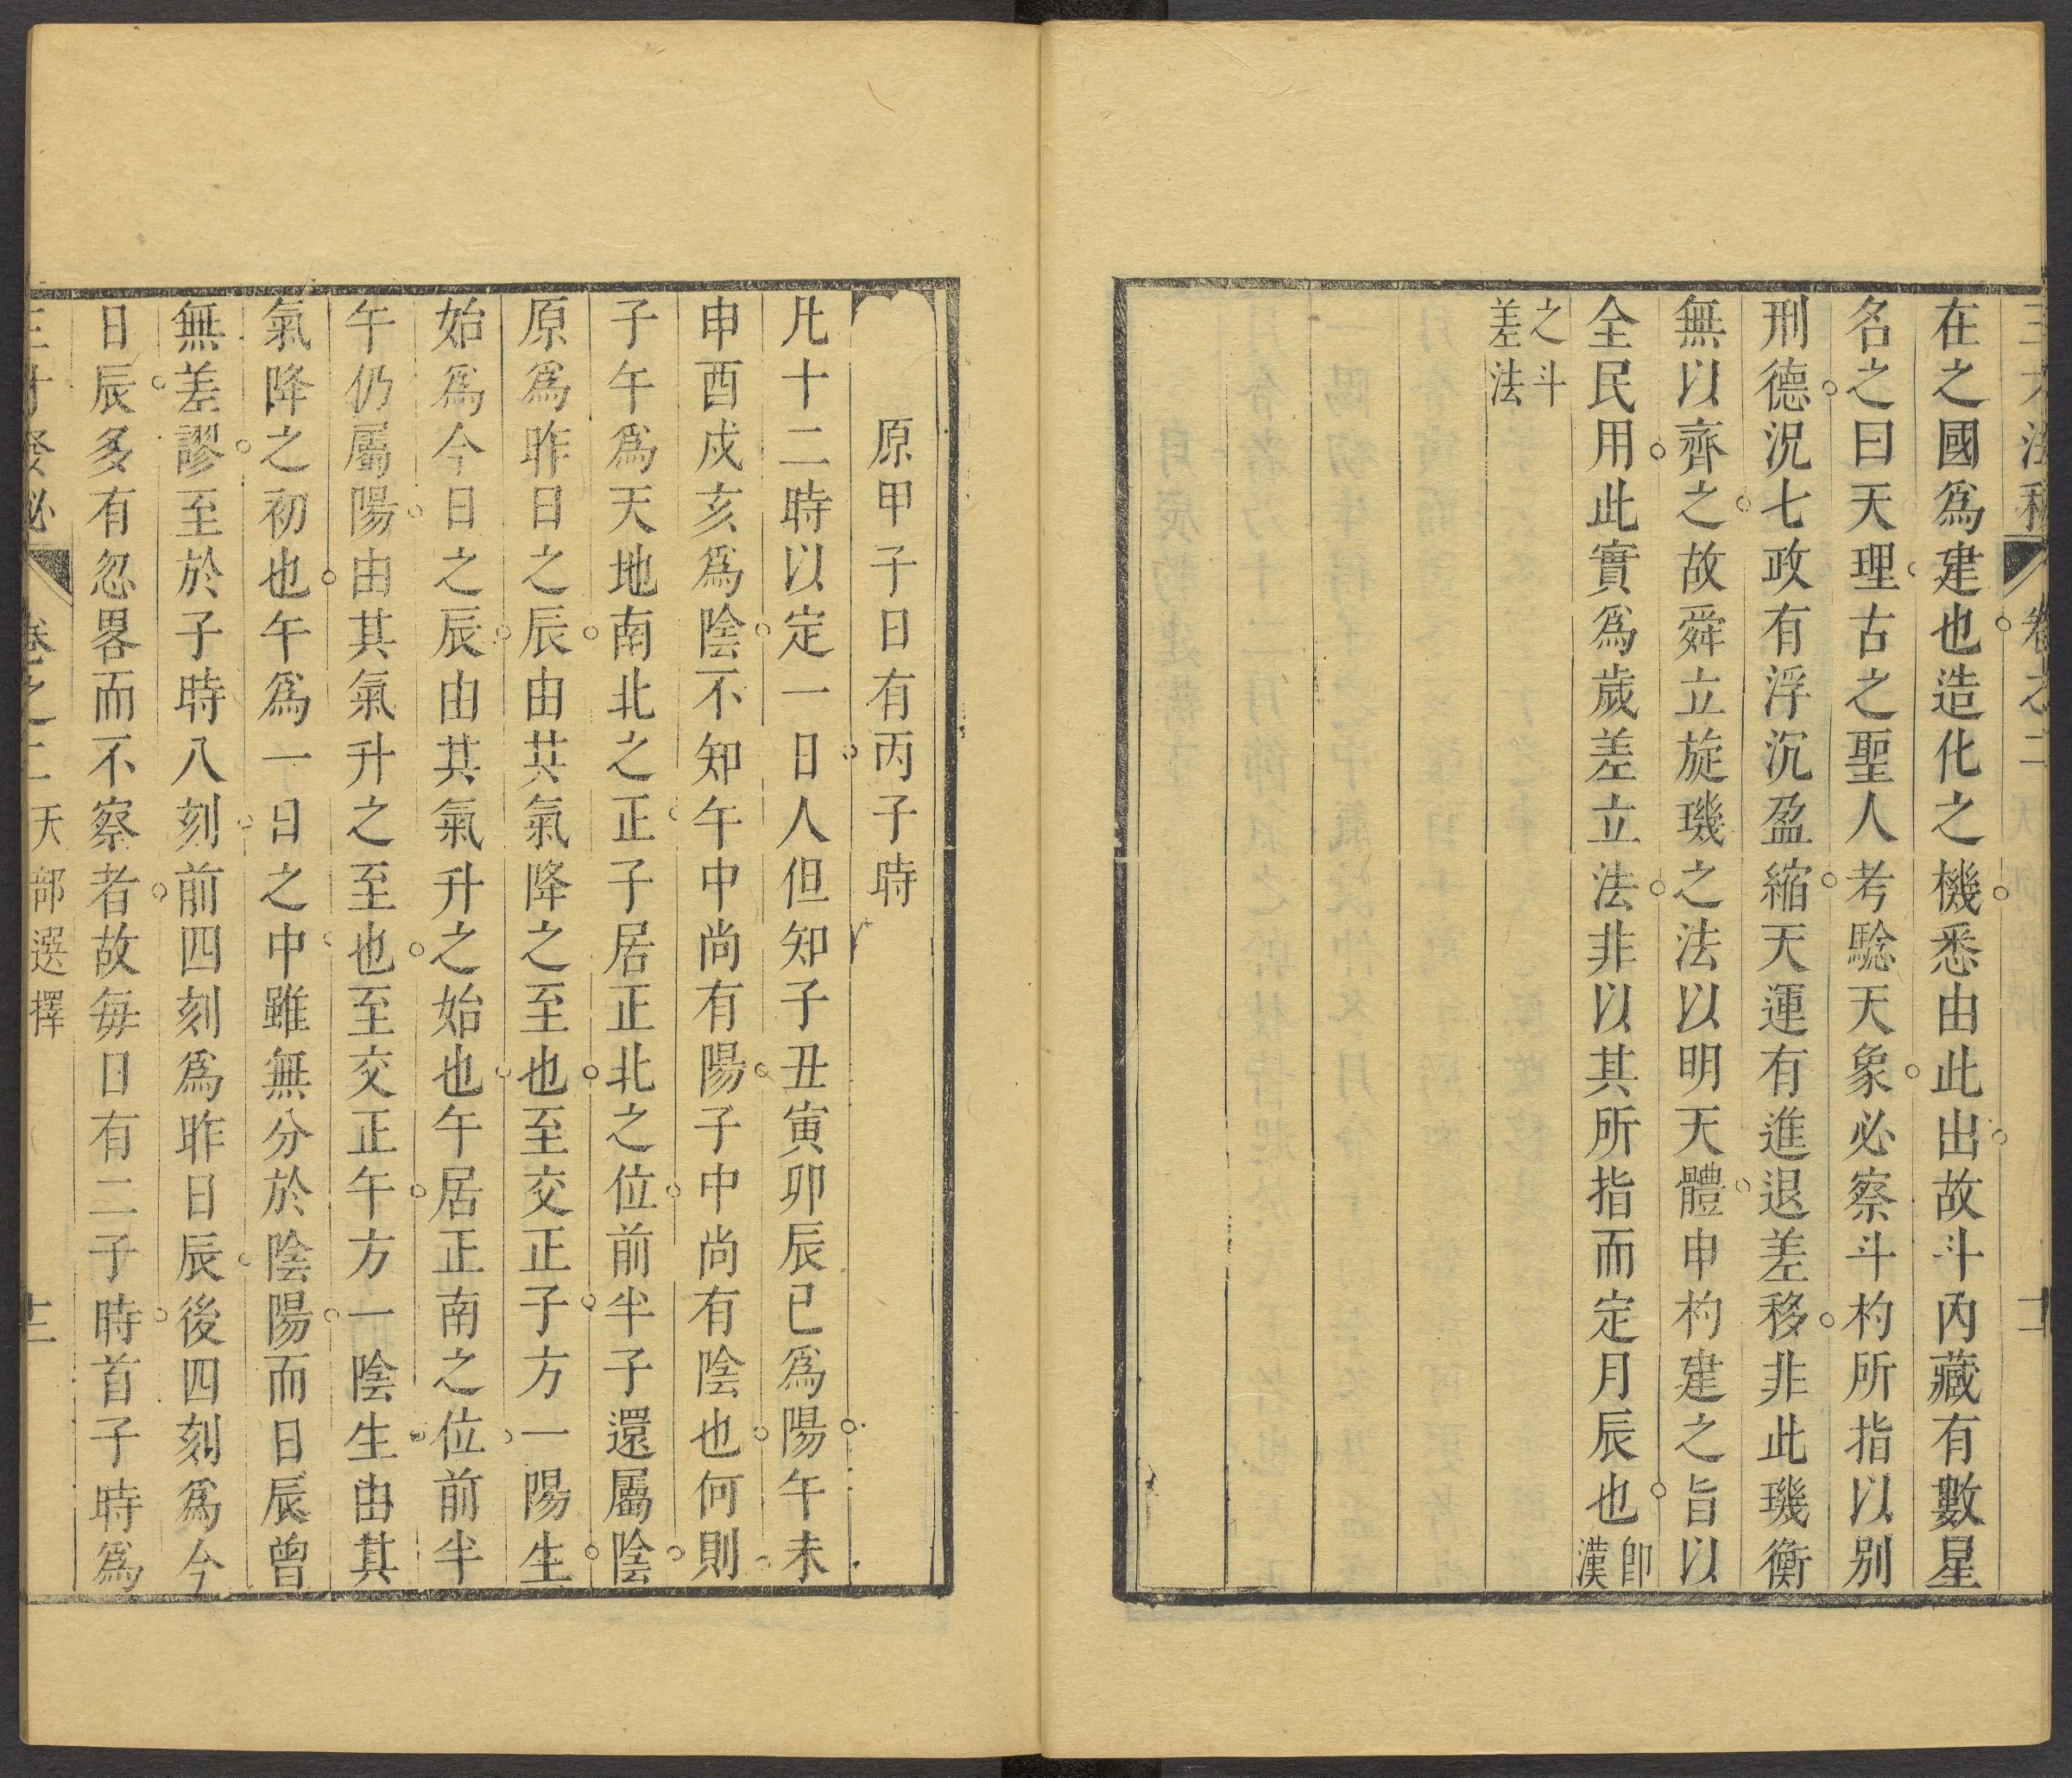 卷之二
在之國爲建也造化之機悉由此出故斗內藏有數星
名之曰天理古之聖人考騐天象必察斗杓所指以别
刑德況七政有浮沉盈縮天運有進退差移非此璣衡
無以齊之故舜立旋璣之法以明天體申杓建之旨以
全民用此實爲歲差立法非以其所指而定月辰也卽漢
之斗差法
原甲子日有丙子時
凡十二時以定一日人但知子丑寅卯辰巳爲陽午未
申酉戌亥爲陰不知午中尚有陽子中尚有陰也何則
子午爲天地南北之正子居正北之位前半子還屬陰
原爲昨日之辰由其氣降之至也至交正子方一陽生
始爲今日之辰由其氣升之始也午居正南之位前半
午仍屬陽由其氣升之至也至交正午方一陰生由其
氣降之初也午爲一日之中雖無分於陰陽而日辰曾
無差謬至於子時八刻前四刻爲昨日辰後四刻爲今
日辰多有忽畧而不察者故每日有二子時首子時爲
卷之二 天部選擇 十二